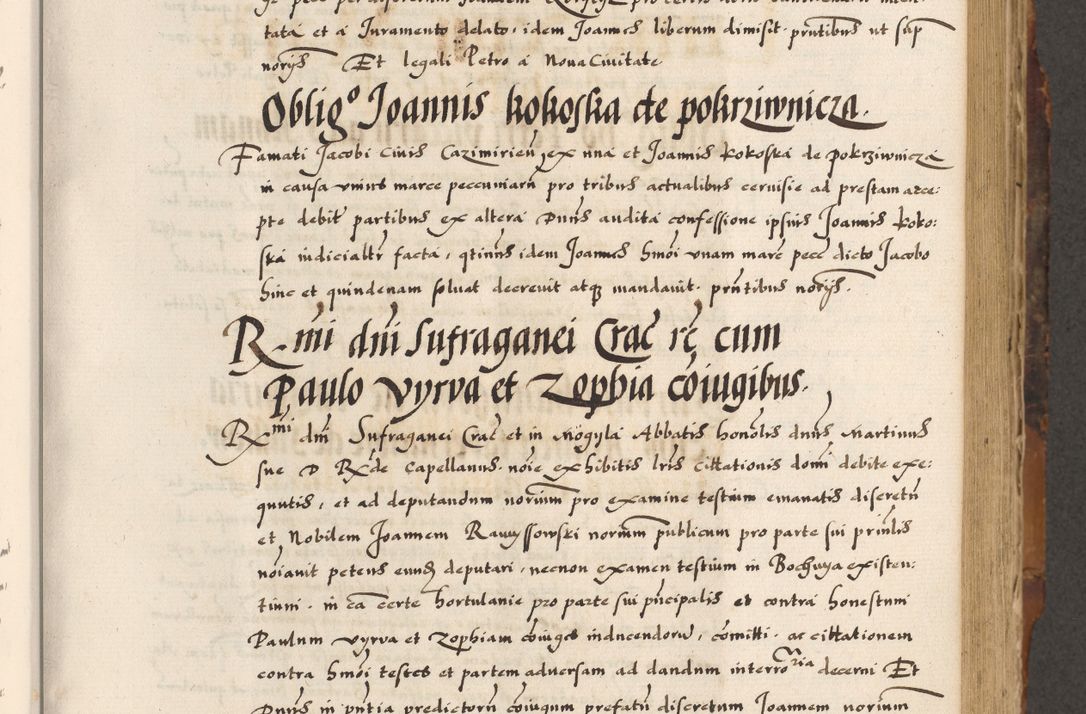 tata et a Iuramento delato, idem Joannes liberum dimisit. prntibus ut sup
norijs Et legali Petro a Nova Civitate
Oblig⁰ Joannis kokoska de pokrziwnicza.
Famati Jacobi Civis Cazimirien̄ ex una et Joannis kokoska de pokrziwnicza
in causa unius marce pecuniarū pro tribus actualibus cervisie ad prestam acce:
pte debit partibus ex altera Dnus audita confessione ipsius Joannis koko:
ska iudicialtr facta, qtinus idem Joannes hmoi unam marc pecc dicto Jacobo
hinc et quindenam solvat decrevit atq mandavit. prntibus norijs.
Rmi dni Sufraganei Crac rc cum
Paulo vyrva et Zophia coiugibus.
Rmi dni Sufraganei Crac et in Mogyla Abbatis honolis dnus Martinus
sue D Rde Capellanus. noie exhibitis lris cittationis domi debite exe:
quutis, et ad deputandum norium pro examine testium emanatis discretū
et Nobilem Joannem Rawyssowski norium publicum pro parte sui prinlis
noiavit petens eund deputari, necnon examen testium in Bochnya existen:
tium. in ca certe hortulanie pro parte sui pncipalis et contra honestum
Paulum vyrva et Zophiam coiuges inducendorū, comitti. ac cittationem
contra hmoi testes et partem adversam ad dandum interroria decerni Et
Dnus in pntia predictorū coiugum prefatū discretum Joannem norium